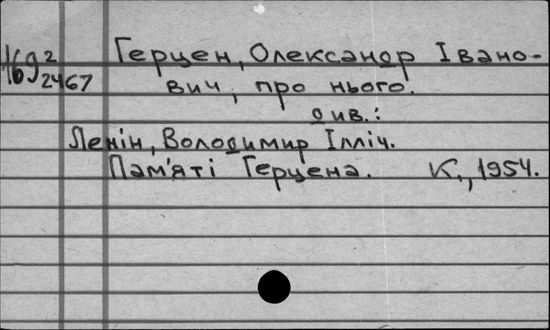 169² Герцен, Олександр Івано-
2467 вич, про нього.
див.:
Ленін, Володимир Ілліч.
Пам'яті Герцена. К., 1954.